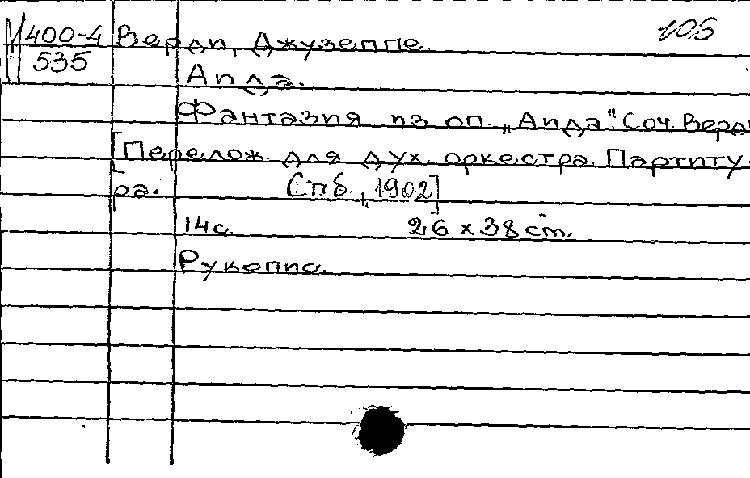 400-4 Верди, Джузеппе. 106
535
Аида.
Фантазия из оп. „Аида" Соч. Верди
[Перелож для дух. оркестра. Партиту-
ра. Спб., 1902]
14с. 26 x 38 cm.
Рукопис.